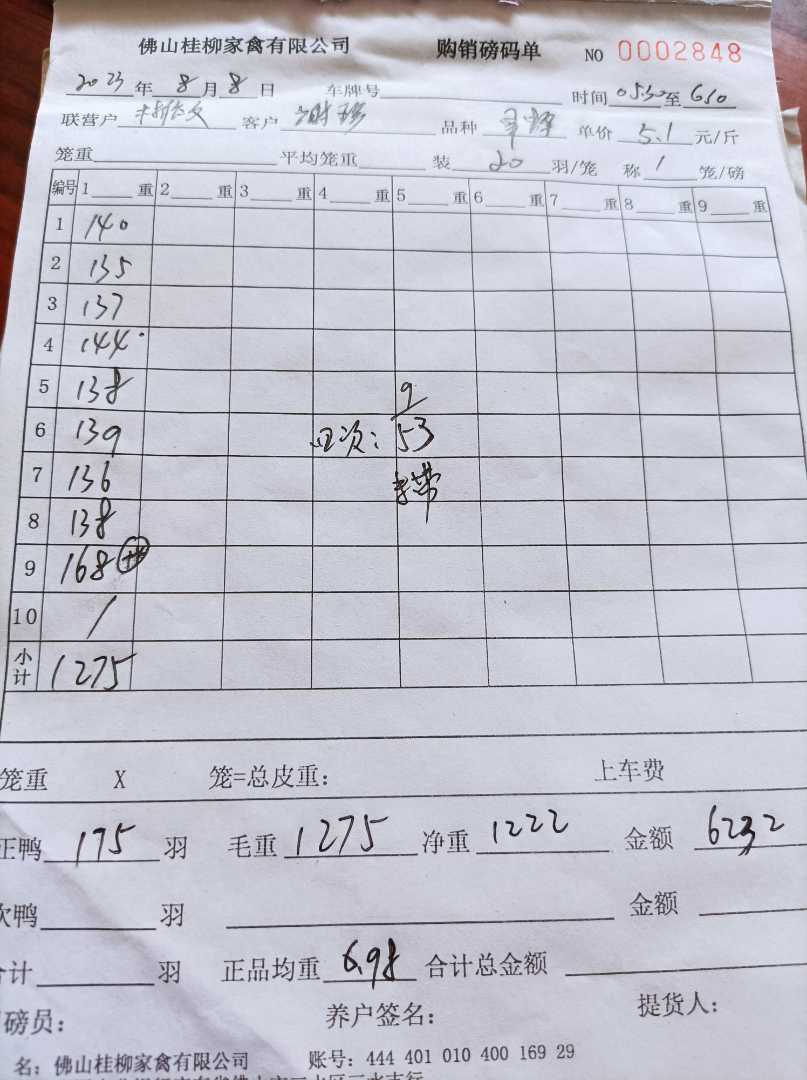 佛山桂柳家禽有限公司 购销磅码单 NO 0002848
2023年8月8日 车牌号 时间0530至610
联营户 客户 品种 单价 5.1 元/斤
笼重 平均笼重 装 20 羽/笼 称 1 笼/磅
编号 1 重 2 重 3 重 4 重 5 重 6 重 7 重 8 重 9 重
1 140
2 135
3 137
4 144
5 138 9
6 139 次: 53
7 136
8 138
9 168
10 /
小计 1275
笼重 X 笼=总皮重: 上车费
正鸭 175 羽 毛重 1275 净重 1222 金额 6232
次鸭 羽 金额
合计 羽 正品均重 6.98 合计总金额
磅员: 养户签名: 提货人:
名: 佛山桂柳家禽有限公司 账号: 444 401 010 400 169 29